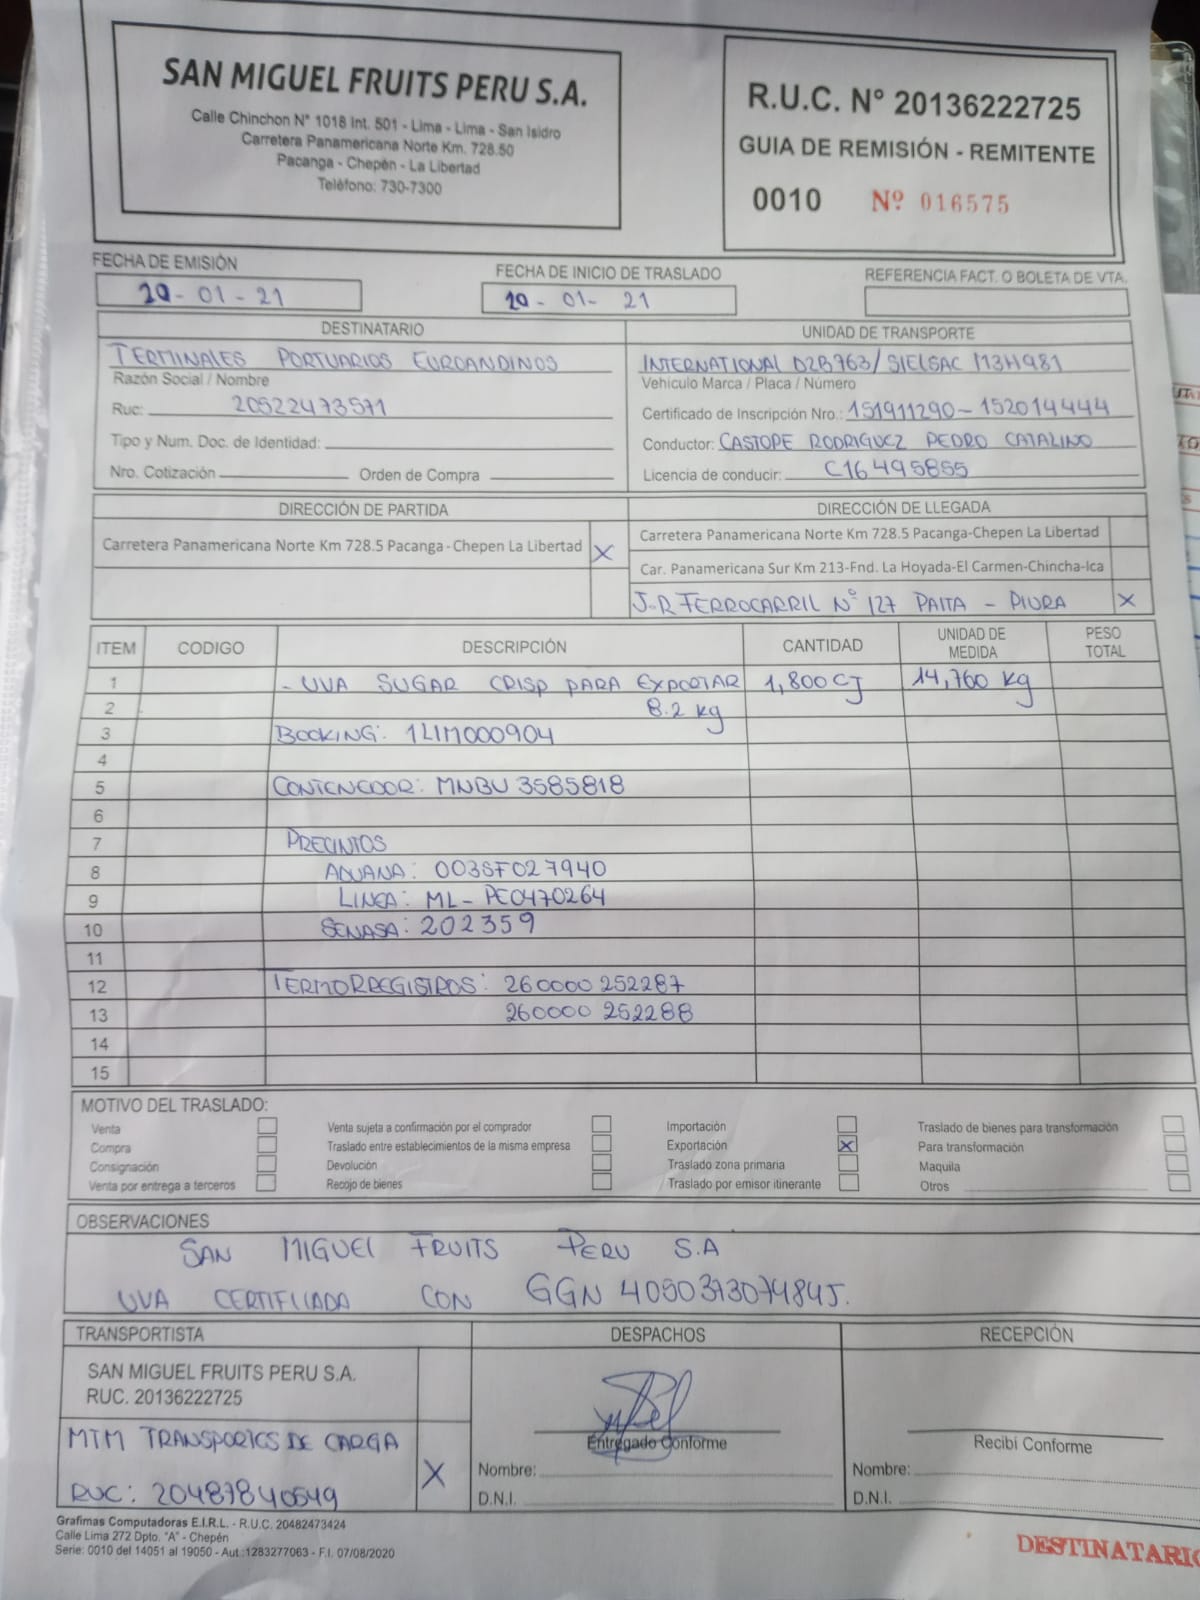 SAN MIGUEL FRUITS PERU S.A.
Calle Chinchon N° 1018 Int. 501 - Lima - Lima - San Isidro
Carretera Panamericana Norte Km. 728.50
Pacanga - Chepén - La Libertad
Teléfono: 730-7300
R.U.C. N° 20136222725
GUIA DE REMISIÓN - REMITENTE
0010 Nº 016575
FECHA DE EMISIÓN
-01-21
FECHA DE INICIO DE TRASLADO
-01-21
REFERENCIA FACT. O BOLETA DE VTA.
DESTINATARIO
TERMINALES PORTUARIOS EUROANDINOS
Razón Social / Nombre
Ruc: 20522473571
Tipo y Num. Doc. de Identidad:
Nro. Cotización Orden de Compra
UNIDAD DE TRANSPORTE
INTERNATIONAL D2B763/SIELSAC M3H981
Vehículo Marca / Placa / Número
Certificado de Inscripción Nro.: 151911290-152014444
Conductor: CASTOPE RODRIGUEZ PEDRO CATALINO
Licencia de conducir: C16495855
DIRECCIÓN DE PARTIDA
Carretera Panamericana Norte Km 728.5 Pacanga-Chepen La Libertad X
DIRECCIÓN DE LLEGADA
Carretera Panamericana Norte Km 728.5 Pacanga-Chepen La Libertad
Car. Panamericana Sur Km 213-Fnd. La Hoyada-El Carmen-Chincha-Ica
J.R FERROCARRIL N° 127 PAITA - PIURA X
ITEM CODIGO DESCRIPCIÓN CANTIDAD UNIDAD DE MEDIDA PESO TOTAL
1 - UVA SUGAR CRISP PARA EXPORTAR 1,800 CJ 14,760 kg
2 8.2 kg
3 BOOKING: 1LIM000904
4
5 CONTENEDOR: MNBU 3585818
6
7 PRECINTOS
8 ADUANA: 003SF027940
9 LINEA: ML-PE0470264
10 SENASA: 202359
11
12 TERMORREGISTROS: 260000 252287
13 260000 252288
14
15
MOTIVO DEL TRASLADO:
Venta Venta sujeta a confirmación por el comprador Importación Traslado de bienes para transformación
Compra Traslado entre establecimientos de la misma empresa Exportación X Para transformación
Consignación Devolución Traslado zona primaria Maquila
Venta por entrega a terceros Recojo de bienes Traslado por emisor itinerante Otros
OBSERVACIONES
SAN MIGUEL FRUITS PERU S.A
UVA CERTIFICADA CON GGN 4050373074845.
TRANSPORTISTA
SAN MIGUEL FRUITS PERU S.A.
RUC. 20136222725
MTM TRANSPORTES DE CARGA
RUC: 20487840549 X
DESPACHOS
Entregado Conforme
Nombre:
D.N.I.
RECEPCIÓN
Recibí Conforme
Nombre:
D.N.I.
Grafimas Computadoras E.I.R.L. - R.U.C. 20482473424
Calle Lima 272 Dpto. "A" - Chepén
Serie: 0010 del 14051 al 19050 - Aut.:1283277063 - F.I. 07/08/2020
DESTINATARIO